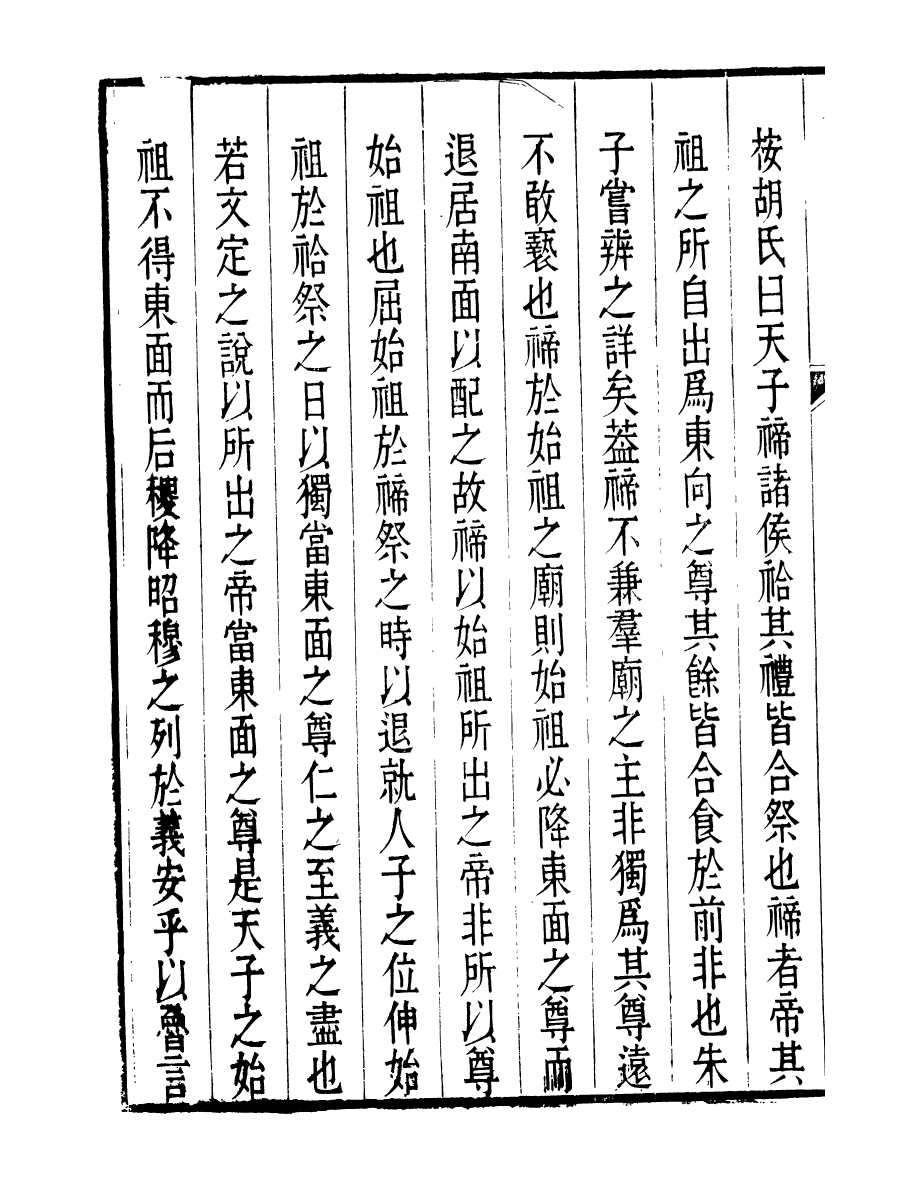 按胡氏曰天子禘諸侯祫其禮皆合祭也禘者帝其
祖之所自出爲東向之尊其餘皆合食於前非也朱
子嘗辨之詳矣葢禘不兼羣廟之主非獨爲其尊遠
不敢褻也禘於始祖之廟則始祖必降東面之尊而
退居南面以配之故禘以始祖所出之帝非所以尊
始祖也屈始祖於禘祭之時以退就人子之位伸始
祖於祫祭之日以獨當東面之尊仁之至義之盡也
若文定之說以所出之帝當東面之尊是天子之始
祖不得東面而后稷降昭穆之列於義安乎以魯言